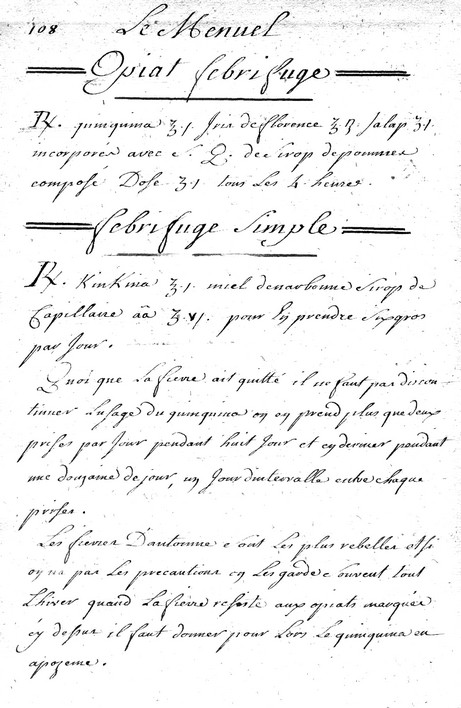 108 Le Menuel
Opiat febrifuge
℞. quinquina ʒ.1 Iris de florence ʒ.ß. Jalap ʒ1.
incorporés avec s. Q. de sirop de pommes
composé Dose ʒ.1 tous Les 4. heures.
febrifuge Simple
℞. KinKina ʒ.1. miel denarbonne Sirop de
Capillaire ãã ʒ.vj. pour En prendre Six gros
par Jour.
Quoi que La fievre ait quitté il ne faut pas discon-
tinuer Lusage du quinquina on en prend plus que deux
prises par Jour pendant huit Jour et en dernier pendant
une douzaine de jour, un Jour dintervalle entre chaque
prises.
Les fievres D'automne sont Les plus rebelles et si
on na pas Les precautions on Les garde souvent tout
L'hiver quand La fievre resiste aux opiats marquée
cy dessus il faut donner pour Lors Le quinquina en
apozeme.